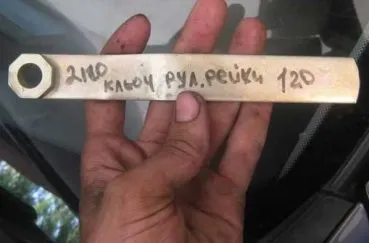 2110
ключ рул. рейки 120